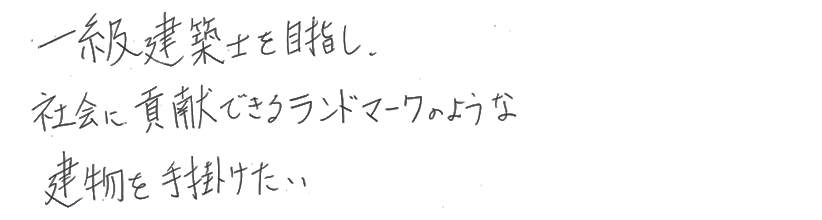 一級建築士を目指し、
社会に貢献できるランドマークのような
建物を手掛けたい